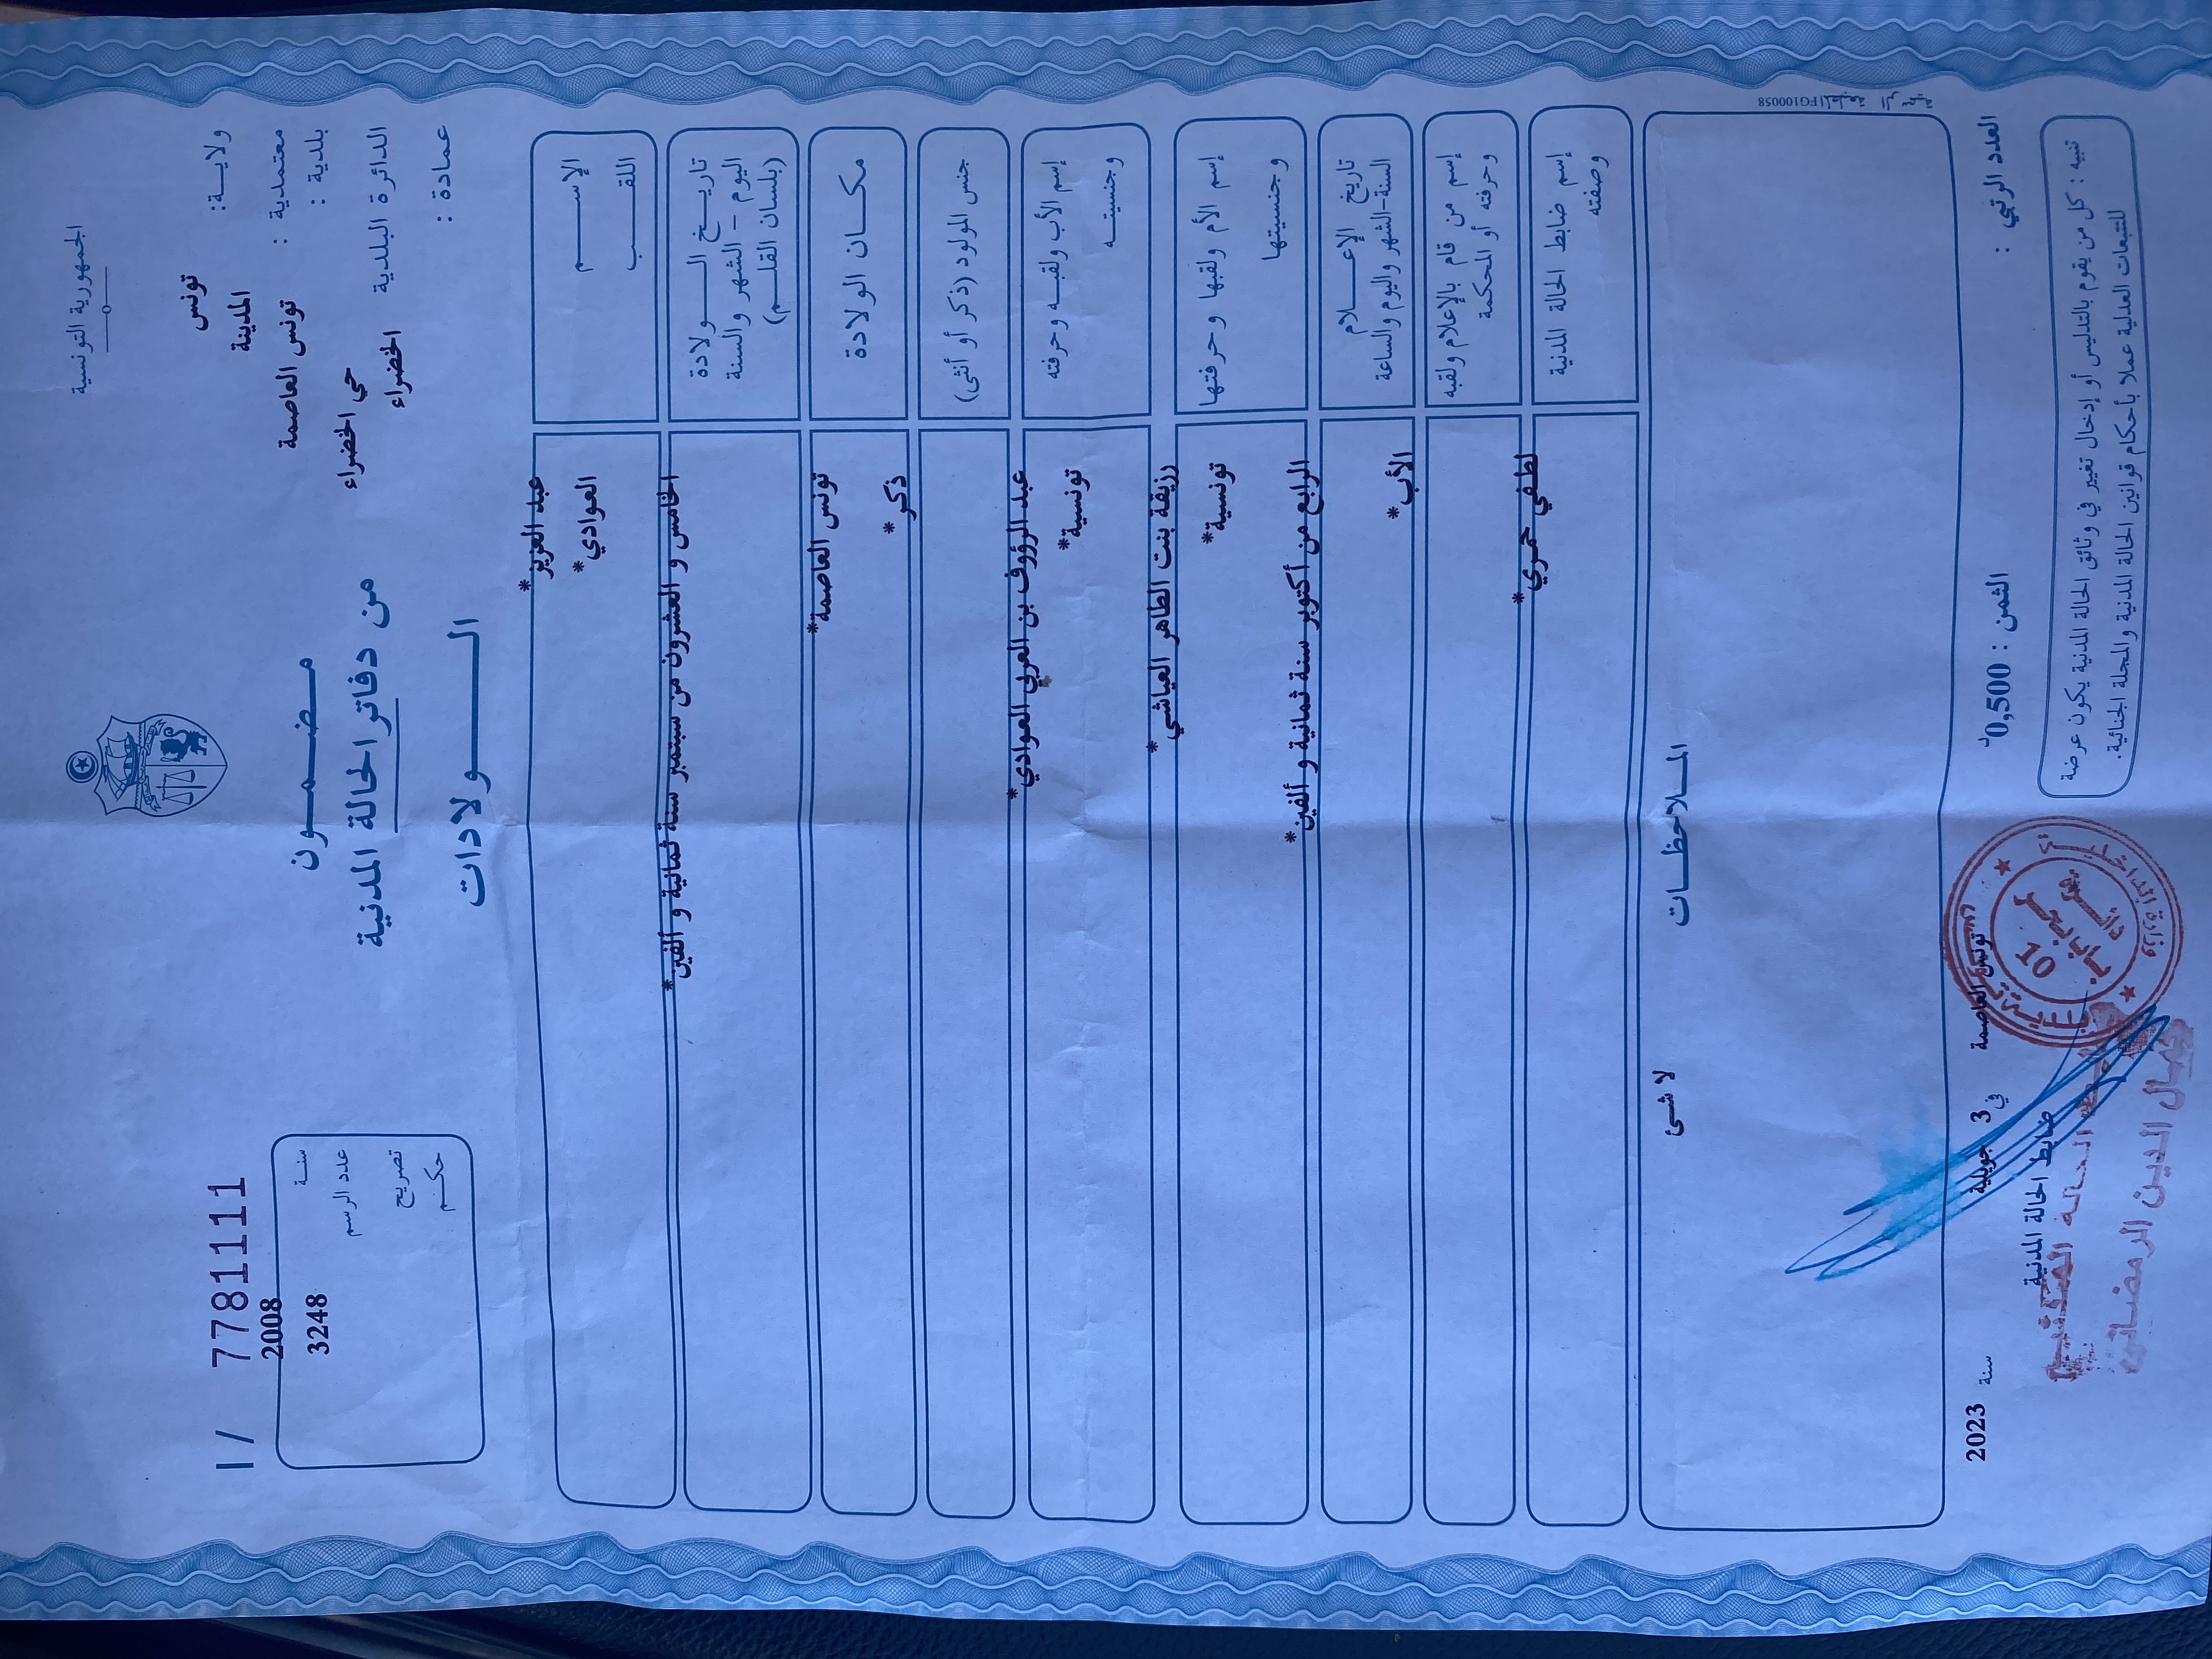 الجمهورية التونسية
ولايــة: تونس
معتمدية : المدينة
بلدية : تونس العاصمة
الدائرة البلدية حي الخضراء
عمادة : الخضراء
مضمــون
من دفاتر الحالة المدنية
الــولادات
I / 7781111
سنة 2008
عدد الرسم 3248
تصريح
حكم
الإســم عبد العزيز*
اللقــب العوادي*
تاريــخ الــولادة الخامس و العشرون من سبتمبر سنة ثمانية و ألفين*
اليوم – الشهر والسنة
(بلسان القلــم)
مكــان الولادة تونس العاصمة*
جنس المولود (ذكر أو أنثى) ذكر*
إسم الأب ولقبــه وحرفته عبد الرؤوف بن العربي العوادي*
وجنسيتــه تونسية*
إسم الأم ولقبها وحرفتها رزيقة بنت الطاهر العياشي*
وجنسيتها تونسية*
تاريخ الإعــلام الرابع من أكتوبر سنة ثمانية و ألفين*
السنة-الشهر واليوم والساعة
إسم من قام بالإعلام ولقبه الأب*
وحرفته أو المحكمة
إسم ضابط الحالة المدنية لطفي حمري*
وصفته
الملاحظــات
لا شئ
المطبعة الرسمية FG100058
العدد الرتبي :
الثمن : 0,500د
تونس العاصمة في 3 جويلية سنة 2023
ضابط الحالة المدنية
تنبيه : كل من يقوم بالتدليس أو إدخال تغيير في وثائق الحالة المدنية يكون عرضة
للتتبعات العدلية عملا بأحكام قوانين الحالة المدنية والمجلة الجنائية.
وزارة الداخلية
10
جمال الدين الرمضاني